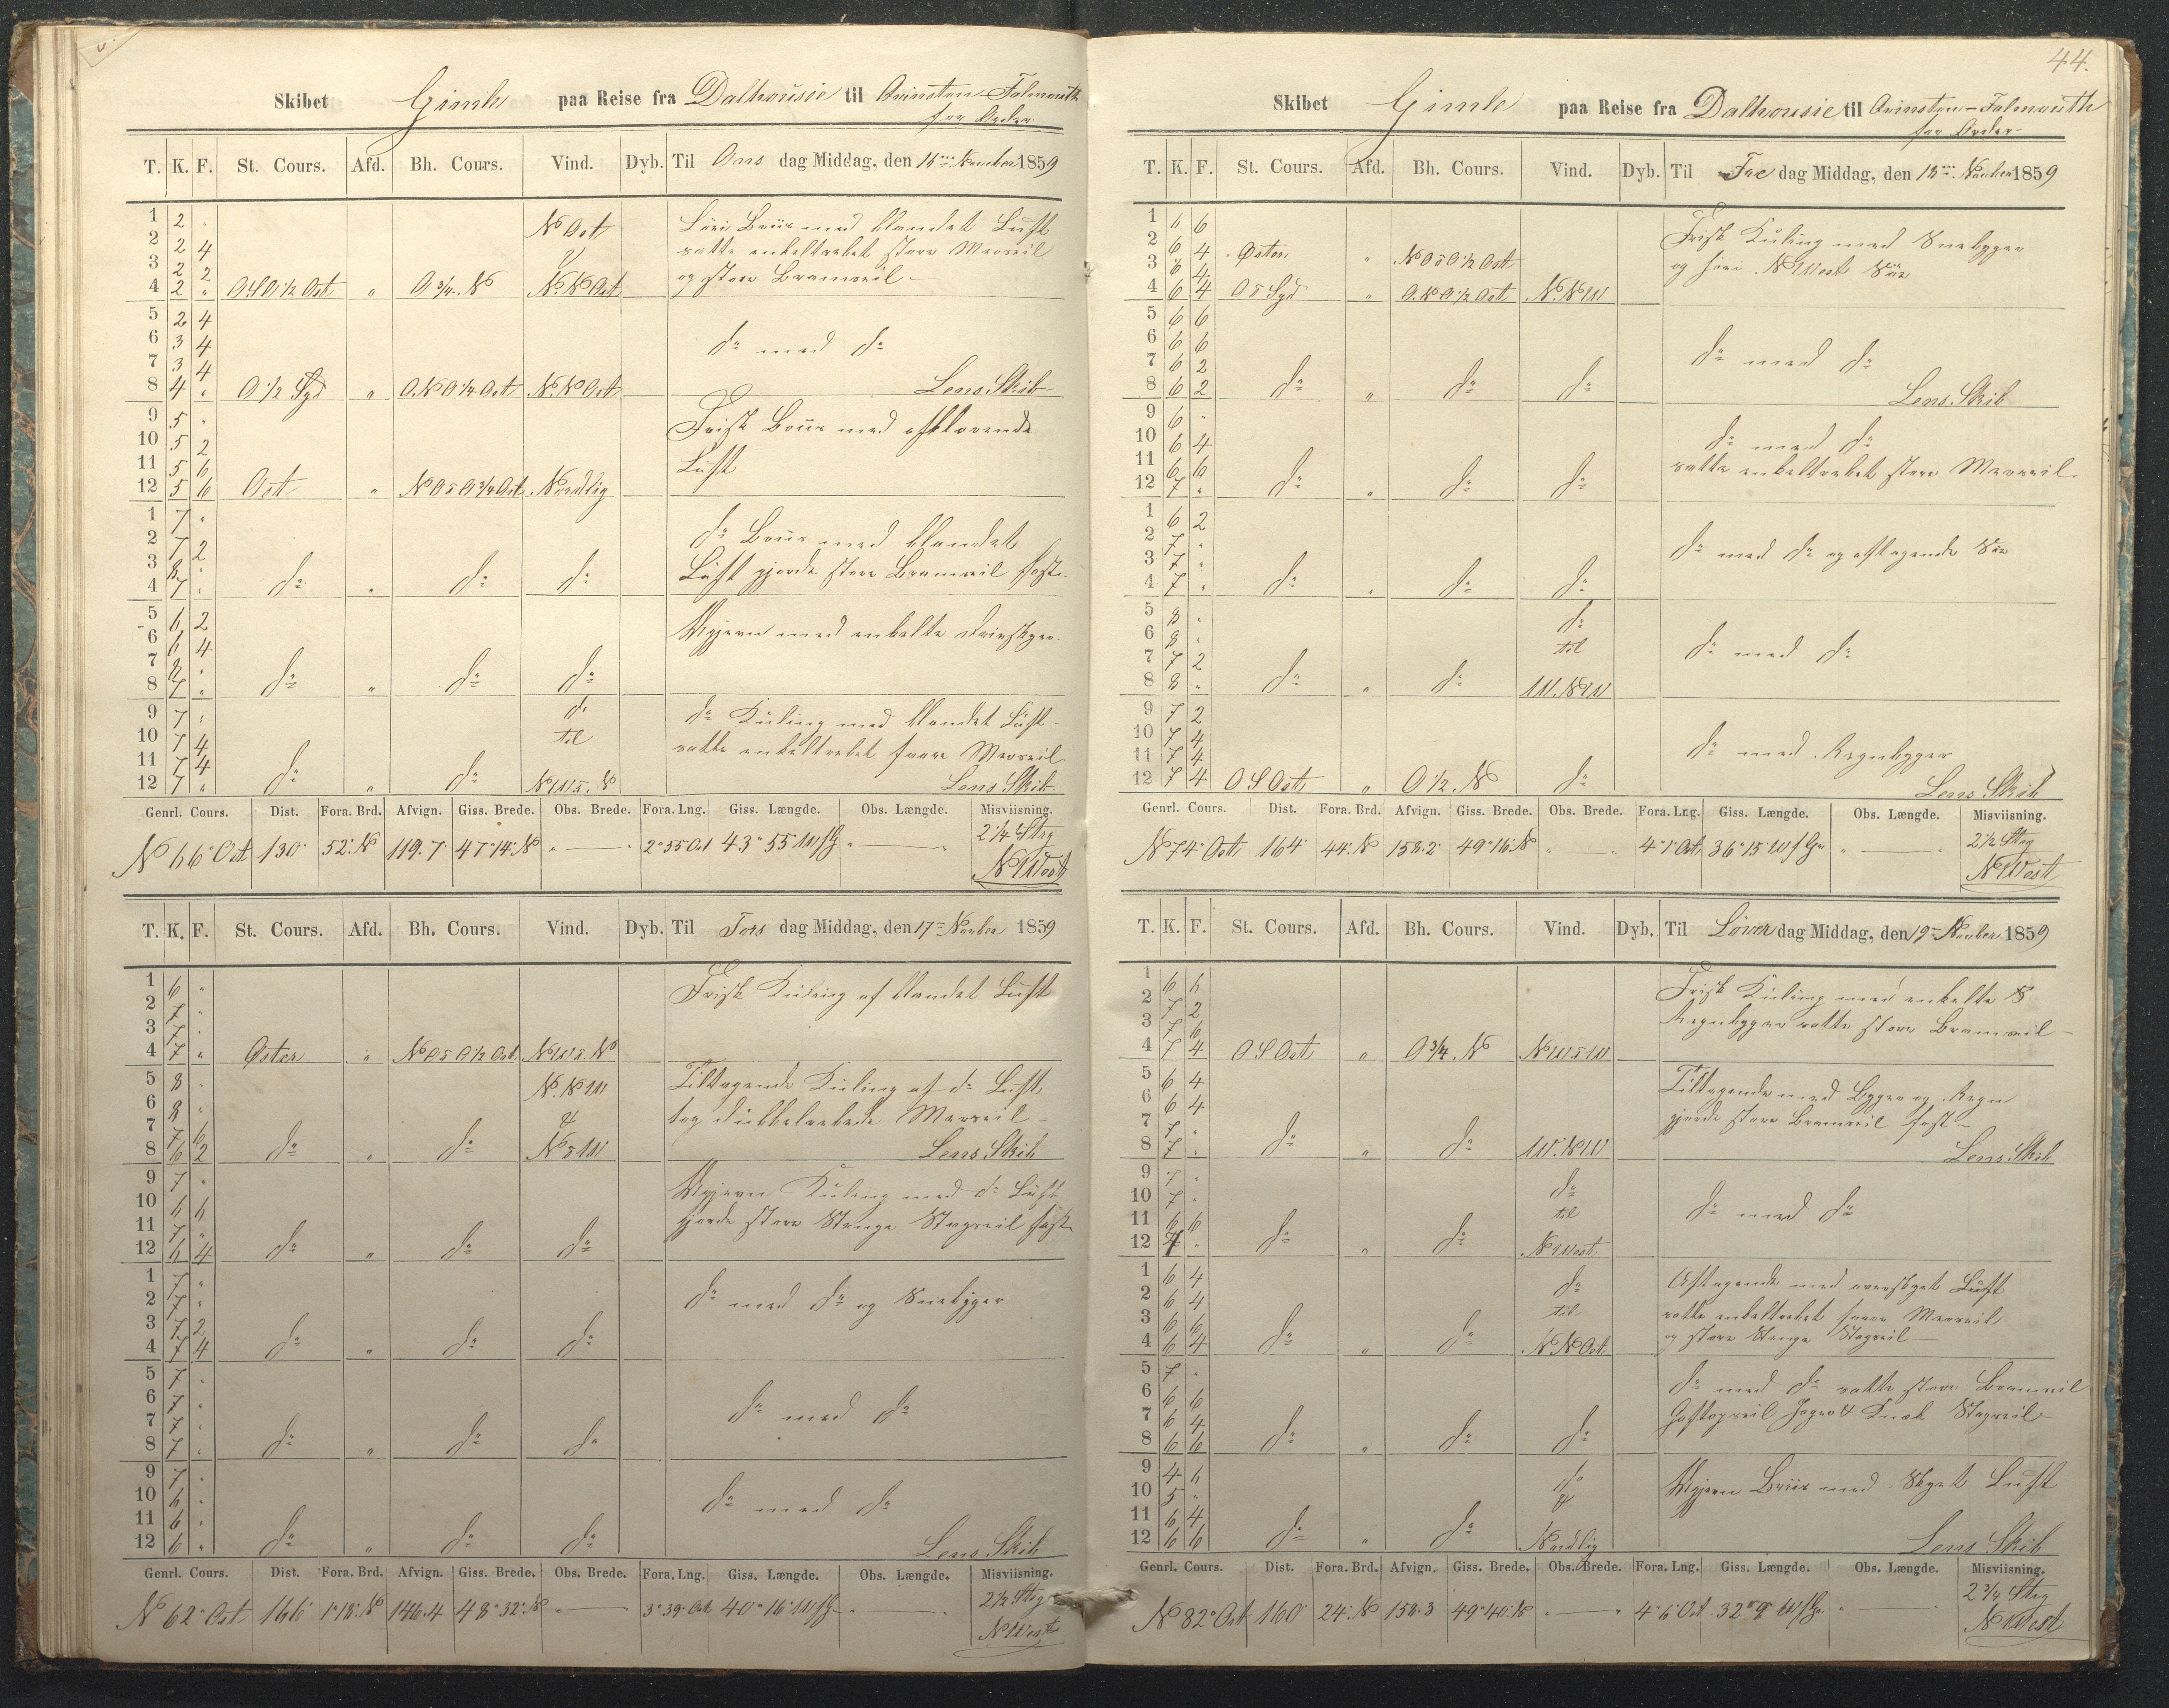 Skibet Gimle paa Reise fra Dalhousie til Falmouth
for Order
T. K. F. St. Cours. Afd. Bh. Cours. Vind. Dyb. Til Ons dag Middag, den 16 November 1859
1 2 "
2 2 4 N Ost
3 2 2
4 2 " OSO 1/2 Ost " O 3/4 N N.N.Ost
med blandet Luft
satte enkeltrebet store Mersseil
og store Bramseil
5 2 4
6 3 4
7 3 4
8 4 " O 1/2 Syd " O.N.O 1/4 Ost N.N.Ost
do med do
Lens Skib
9 5 "
10 5 2
11 5 6
12 5 6 Ost " NOsO 3/4 Ost Nordlig
Frisk Briis med afklarende
Luft
1 7 "
2 7 2
3 8 "
4 7 " do " do do
do Briis med blandet
Luft gjorde store Bramseil fast
5 6 2
6 6 4
7 8 "
8 7 " do " do do
med enkelte
9 7 "
10 7 4
11 7 4
12 7 " do " do do til NWs.N
do Kuling med blandet Luft
satte enkeltrebet Mersseil
Lens Skib
Genrl. Cours. Dist. Fora. Brd. Afvign. Giss. Brede. Obs. Brede. Fora. Lng. Giss. Længde. Obs. Længde. Misviisning.
N 66° Ost 130 52' N 119.7 47°14' N " — " 2°55' Ost 43°55' W f G " — " 2 1/4 Streg
N West
T. K. F. St. Cours. Afd. Bh. Cours. Vind. Dyb. Til Tors dag Middag, den 17 November 1859
1 6 "
2 7 "
3 7 "
4 7 " Østen " NOsO 1/2 Ost NWs.N
Frisk Kuling af blandet Luft
5 8 "
6 8 "
7 7 6
8 6 2 do " do N.NW & NsW
Tiltagende Kuling af do Luft
tog dubbeltrebede Mersseil
Lens Skib
9 7 "
10 6 6
11 7 "
12 6 4 do " do do
Kuling med do Luft
gjorde store Stenge Stagseil fast
1 7 "
2 7 "
3 7 2
4 7 4 do " do do
do med do og Sneebyger
5 7 "
6 7 "
7 7 "
8 7 " do " do do
do med do
9 7 "
10 6 "
11 6 "
12 6 " do " do do
do med do
Lens Skib
Genrl. Cours. Dist. Fora. Brd. Afvign. Giss. Brede. Obs. Brede. Fora. Lng. Giss. Længde. Obs. Længde. Misviisning.
N 62° Ost 166 1°18' N 146.4 48°32' N " — " 3°39' Ost 40°16' W f G " — " 2 1/2 Streg
N West
44.
Skibet Gimle paa Reise fra Dalhousie til Falmouth
for Order
T. K. F. St. Cours. Afd. Bh. Cours. Vind. Dyb. Til Fre dag Middag, den 18 November 1859
1 6 6
2 6 4 Østen " NOsO 1/2 Ost
3 6 4
4 6 4 Os Syd " O.N.O 1/2 Ost N.NW
Frisk Kuling med Sneebyger
og N West Søe
5 6 6
6 6 6
7 6 2
8 6 2 do " do do
do med do
Lens Skib
9 6 "
10 6 4
11 6 6
12 7 " do " do do
do med do
satte enkeltrebet store Mersseil
1 6 2
2 7 "
3 7 "
4 7 " do " do do
do med do og aftagende Søe
5 8 "
6 8 "
7 7 2
8 8 " do " do do til W.NW
do med do
9 7 2
10 7 4
11 7 4
12 7 4 OSOst " O 1/2 N do
do med Regnbyger
Lens Skib
Genrl. Cours. Dist. Fora. Brd. Afvign. Giss. Brede. Obs. Brede. Fora. Lng. Giss. Længde. Obs. Længde. Misviisning.
N 74° Ost 164 44' N 158.2 49°16' N " — " 4°1' Ost 36°15' W f Gr " — " 2 1/2 Streg
N West
T. K. F. St. Cours. Afd. Bh. Cours. Vind. Dyb. Til Löver dag Middag, den 19 November 1859
1 6 6
2 7 2
3 7 6
4 7 4 OSOst " O 3/4 N NWsW
Frisk Kuling med enkelte
Regnbyger satte store Bramseil
5 6 4
6 6 4
7 7 "
8 7 " do " do W.NW
Tiltagende med Byger og Regn
gjorde store Bramseil fast
Lens Skib
9 7 "
10 7 "
11 6 6
12 7 " do " do do til N West
do med do
1 6 4
2 6 4
3 6 6
4 6 4 do " do do til N.N.Ost
Aftagende med overskyet Luft
satte enkeltrebet Mersseil
og store Stenge Stagseil
5 7 "
6 6 6
7 6 4
8 6 6 do " do do
do med do satte store Bramseil
Gaftopseil Jager & Stagseil
9 4 6
10 5 "
11 6 4
12 6 6 do " do do & Nordlig
Briis med Skyet Luft
Lens Skib
Genrl. Cours. Dist. Fora. Brd. Afvign. Giss. Brede. Obs. Brede. Fora. Lng. Giss. Længde. Obs. Længde. Misviisning.
N 82° Ost 160 24' N 158.3 49°40' N " — " 4°6' Ost 32°9' W f Gr " — " 2 3/4 Streg
N West